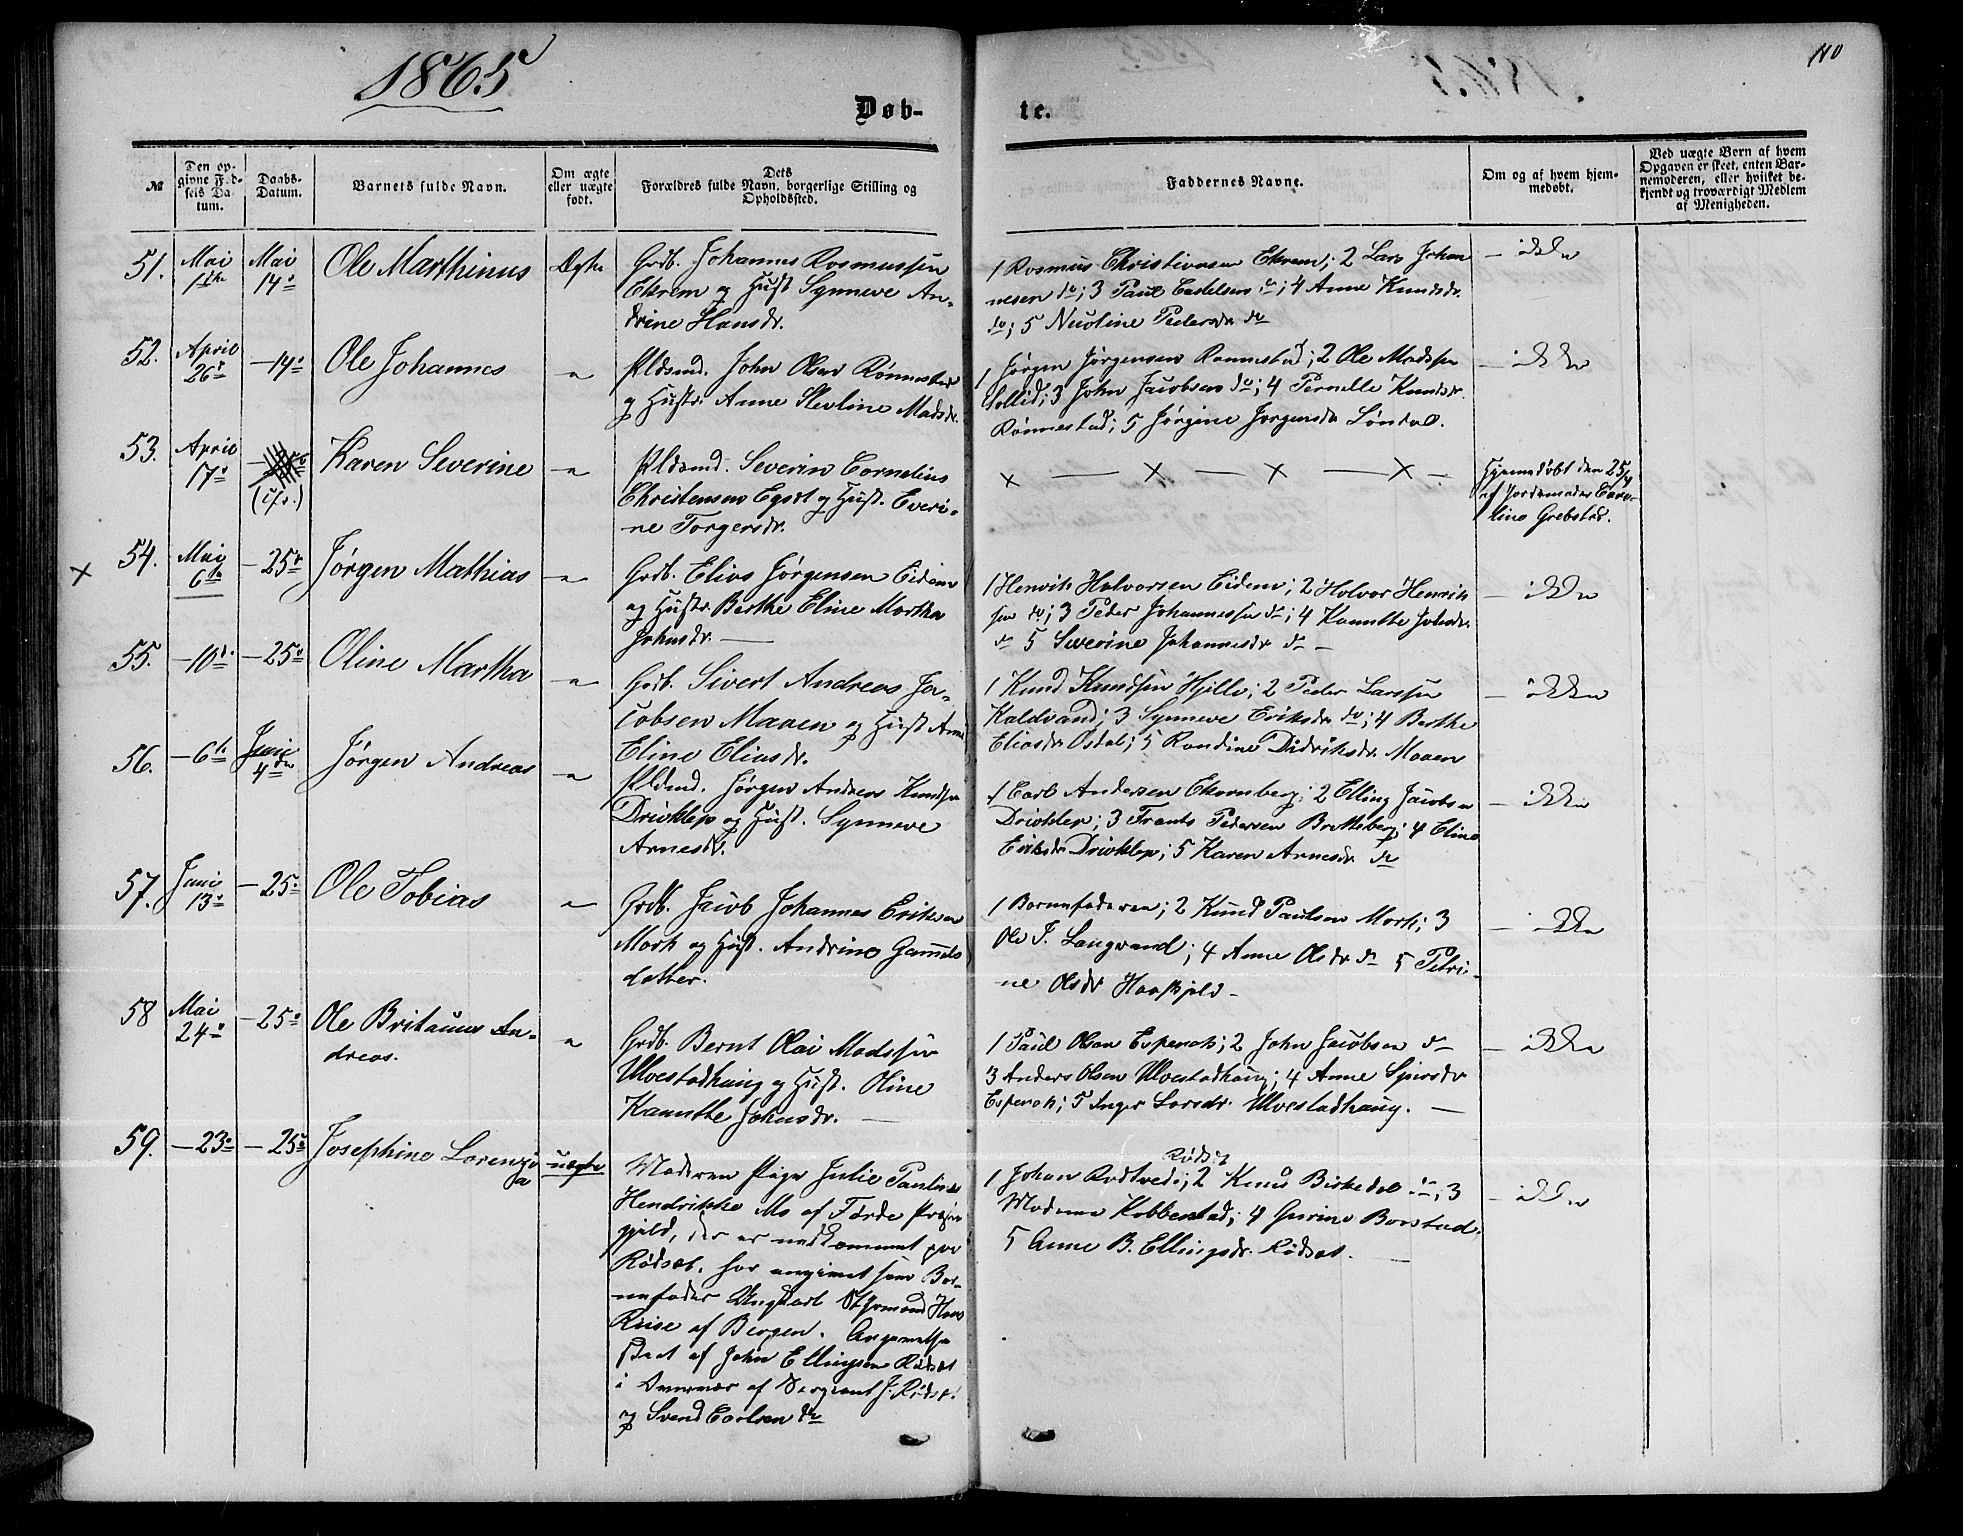 1865
110
Døb-
te.
№
Den op-
givne Fød-
sels Da-
tum.
Daabs-
Datum.
Barnets fulde Navn.
Om ægte
eller uægte
født.
Dets
Forældres fulde Navn, borgerlige Stilling og
Opholdssted.
Faddernes Navne.
Om og af hvem hjem-
medøbt.
Ved uægte Børn af hvem
Opgaven er skeet, enten Bar-
nemoderen, eller hvilket be-
kjendt og troværdigt Medlem
af Menigheden.
51.
Mai
Mai
14
Ole Marthinus
Ægte
Grdb. Johannes Rasmussen
Ekrem og Hust Synneve An-
drine Hansdr.
1 Rasmus Christiansen Ekrem; 2 Lars Johan
nesen do; 3 Paul Eadelsen do; 4 Anne Knudsdr.
do; 5 Nicoline Pedersdr do
– ikke
52.
April
26
– 14
Ole Johannes
"
Pldsmd. John Olsen Rønnestad
og Hustr. Anne Stevline Madsdr.
1 Jørgen Jørgensen Rønnestad; 2 Ole Madsen
Sollid; 3 John Jacobsen do; 4 Pernelle Knudsdr.
Rønnestad; 5 Jørgine Jørgensdr Løndal.
– ikke
53.
April
17
Karen Severine
"
Pldsmd. Severin Cornelius
Christensen Egset og Hust. Everi-
ne Torgersdr.
x — x — x — x –
Hjemmedøbt den 25/4
af Jordemoder Caro-
line Grebstad.
x
54.
Mai
6te
– 25
Jørgen Mathias
"
Grdb. Elias Jørgensen Eidem
og Hustr. Berthe Eline Martha
Johnsdr. —
1 Henrik Halvorsen Eidem; 2 Halvor Henrik
sen do; 3 Peder Johannessen do; 4 Kanutte Johsdr.
do 5 Severine Johannesdr do –
– ikke
55.
– 10
– 25
Oline Martha
"
Grdb. Sivert Andreas Ja-
cobsen Maaen og Hust Anne
Eline Eliasdr.
1 Knud Knudsen Hjelle; 2 Peder Larssen
Kaldvand; 3 Synneve Eriksdr do; 4 Berthe
Eliasdr Osdal; 5 Randine Didriksdr. Maaen
– ikke
56.
– 6te
Juni
4de
Jørgen Andreas
"
Pldsmd. Jørgen Andreas Knudsen
Drivklep og Hust. Synneve
Arnesdr.
1 Carl Andersen Ekornberg; 2 Elling Jacobsen
Drivklep; 3 Frants Pedersen Brettsberg; 4 Eline
Eriksdr Drivklep; 5 Karen Arnesdr do
– ikke
57.
Juni
13
– 25
Ole Tobias
"
Grdb. Jacob Johannes Eriksen
Mork og Hust. Andrine Gamels
datter.
1 Barnefaderen; 2 Knud Paulsen Mork; 3
Ole T. Langvand; 4 Anne Olsdr do 5 Petri-
ne Olsdr Haaskjold –
– ikke
58
Mai
24
– 25
Ole Britanus An-
dreas.
"
Grdb. Bernt Olai Madssen
Ulvestadhaug og Hust. Oline
Kanutte Johnsdr. —
1 Paul Olsen Espenak; 2 John Jacobsen do
3 Anders Olsen Ulvestadhaug; 4 Anne Sjursdr
Espenak; 5 Inger Larsdr. Ulvestadhaug. —
– ikke
59.
– 23
– 25
Josephine Lorenze
a
uægte
Moderen Pige Julie Pauline
Hendrikke Mo af Førde Præste
gjeld, der er nedkommet paa
Rødset, har angivet som Bar-
nefader Ungkarl
Riise af Bergen. Angivelsen
skeet af John Ellingsen Rødset
i Nærvær af Sergeant J. Rødset
og Svend Carlsen do
Rødset
1 Johan Rødtvedt; 2 Knud Birkedal do; 3
Madame Kobbenstad; 4 Gurine Barstad
5 Anne B. Ellingsdr. Rødset. —
– ikke